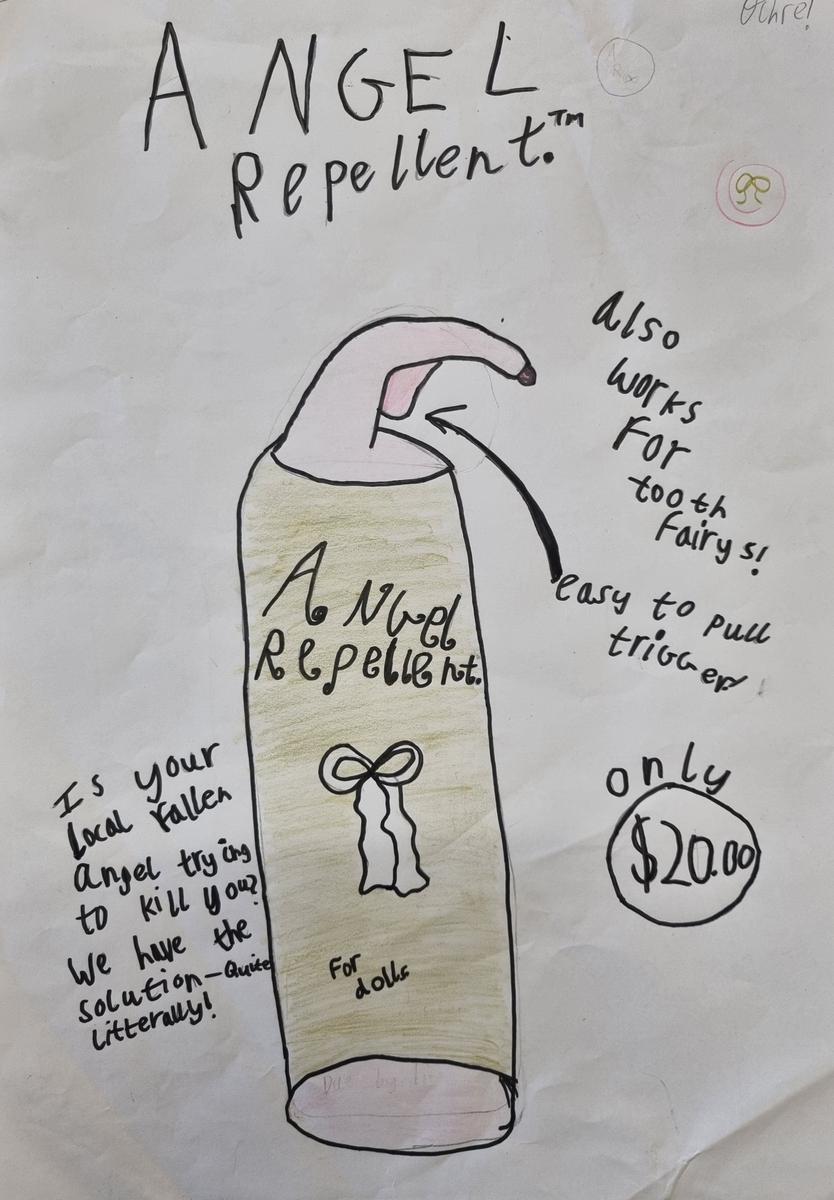 Ochre!
ANGEL
Repellent.™
also
works
For
tooth
fairys!
easy to pull
trigger!
ANgel
Repellent.
Is your
local Fallen
angel trying
to kill you?
We have the
solution—Quite
Litterally!
only
$20.00
For
dolls